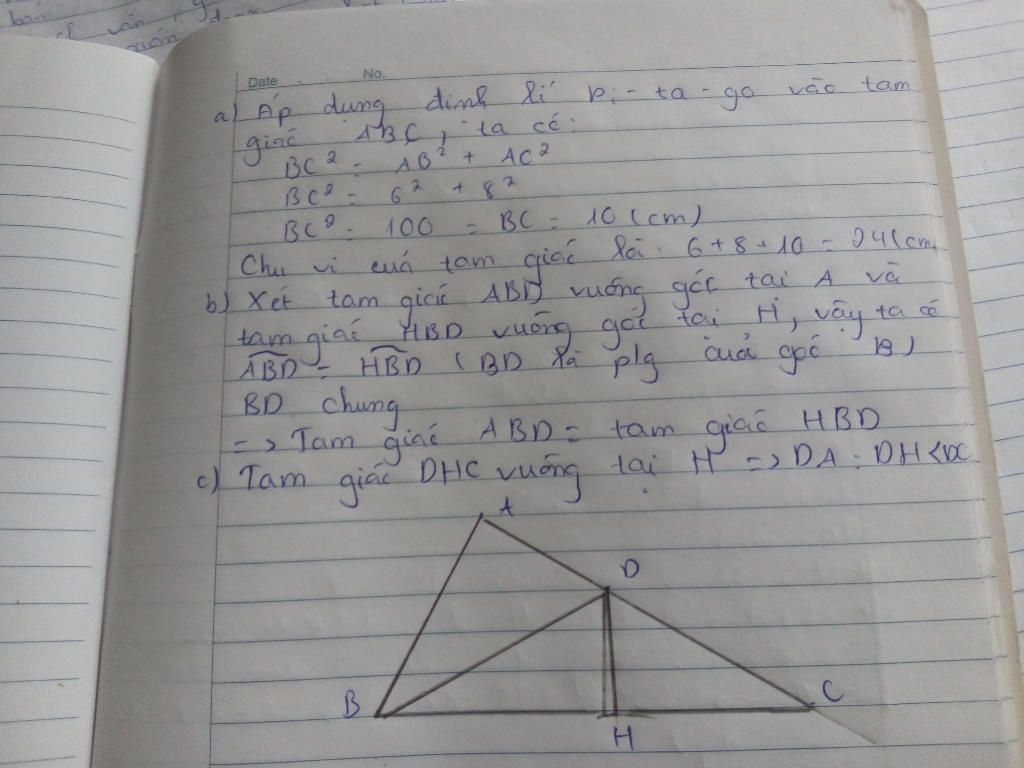 Date No.
a) Áp dụng định lí Pi-ta-go vào tam
giác ABC, ta có:
BC² = AB² + AC²
BC² = 6² + 8²
BC² = 100 = BC = 10 (cm)
Chu vi cuả tam giác là: 6 + 8 + 10 = 24 (cm
b) Xét tam giác ABD vuống góc tại A và
tam giác HBD vuông góc tại H, vậy ta có
ABD = HBD (BD là plg cuả góc B)
BD chung
=> Tam giác ABD = tam giác HBD
c) Tam giác DHC vuông tại H => DA = DH < DC
A
D
B
C
H